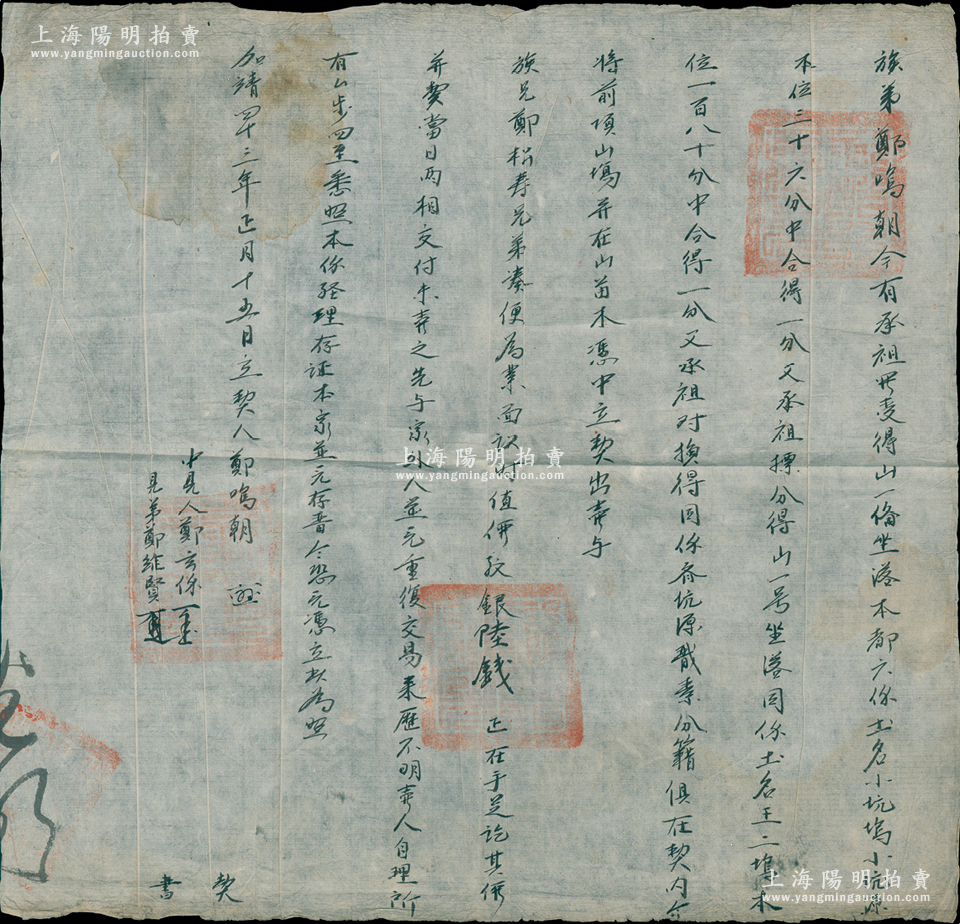 族弟鄭鳴朝今有承祖買受得山一備坐落本都六保土名小坑塢小坑源
本位三十六分中合得一分又承祖摽分得山一号坐落同保土名王二塢本
位一百八十分中合得一分又承祖对換得同保 坑源 分籍俱在契内今
将前項山塢并在山苗木憑中立契出賣与
族兄鄭松寿兄弟湊便為業面议时值價紋銀陸錢正在手足訖其價
并契當日两相交付未賣之先与家外人並无重復交易来歷不明賣人自理所
有山步四至悉照本保经理存证本家並无存畜今恐无憑立此為照
加靖四十三年正月十五日立契人鄭鳴朝 契
中見人鄭玄保
見弟鄭維賢 書
上海陽明拍賣
www.yangmingauction.com
上海陽明拍賣
www.yangmingauction.com
上海陽明拍賣
www.yangmingauction.com
上海陽明拍賣
www.yangmingauction.com
上海陽明拍賣
www.yangmingauction.com